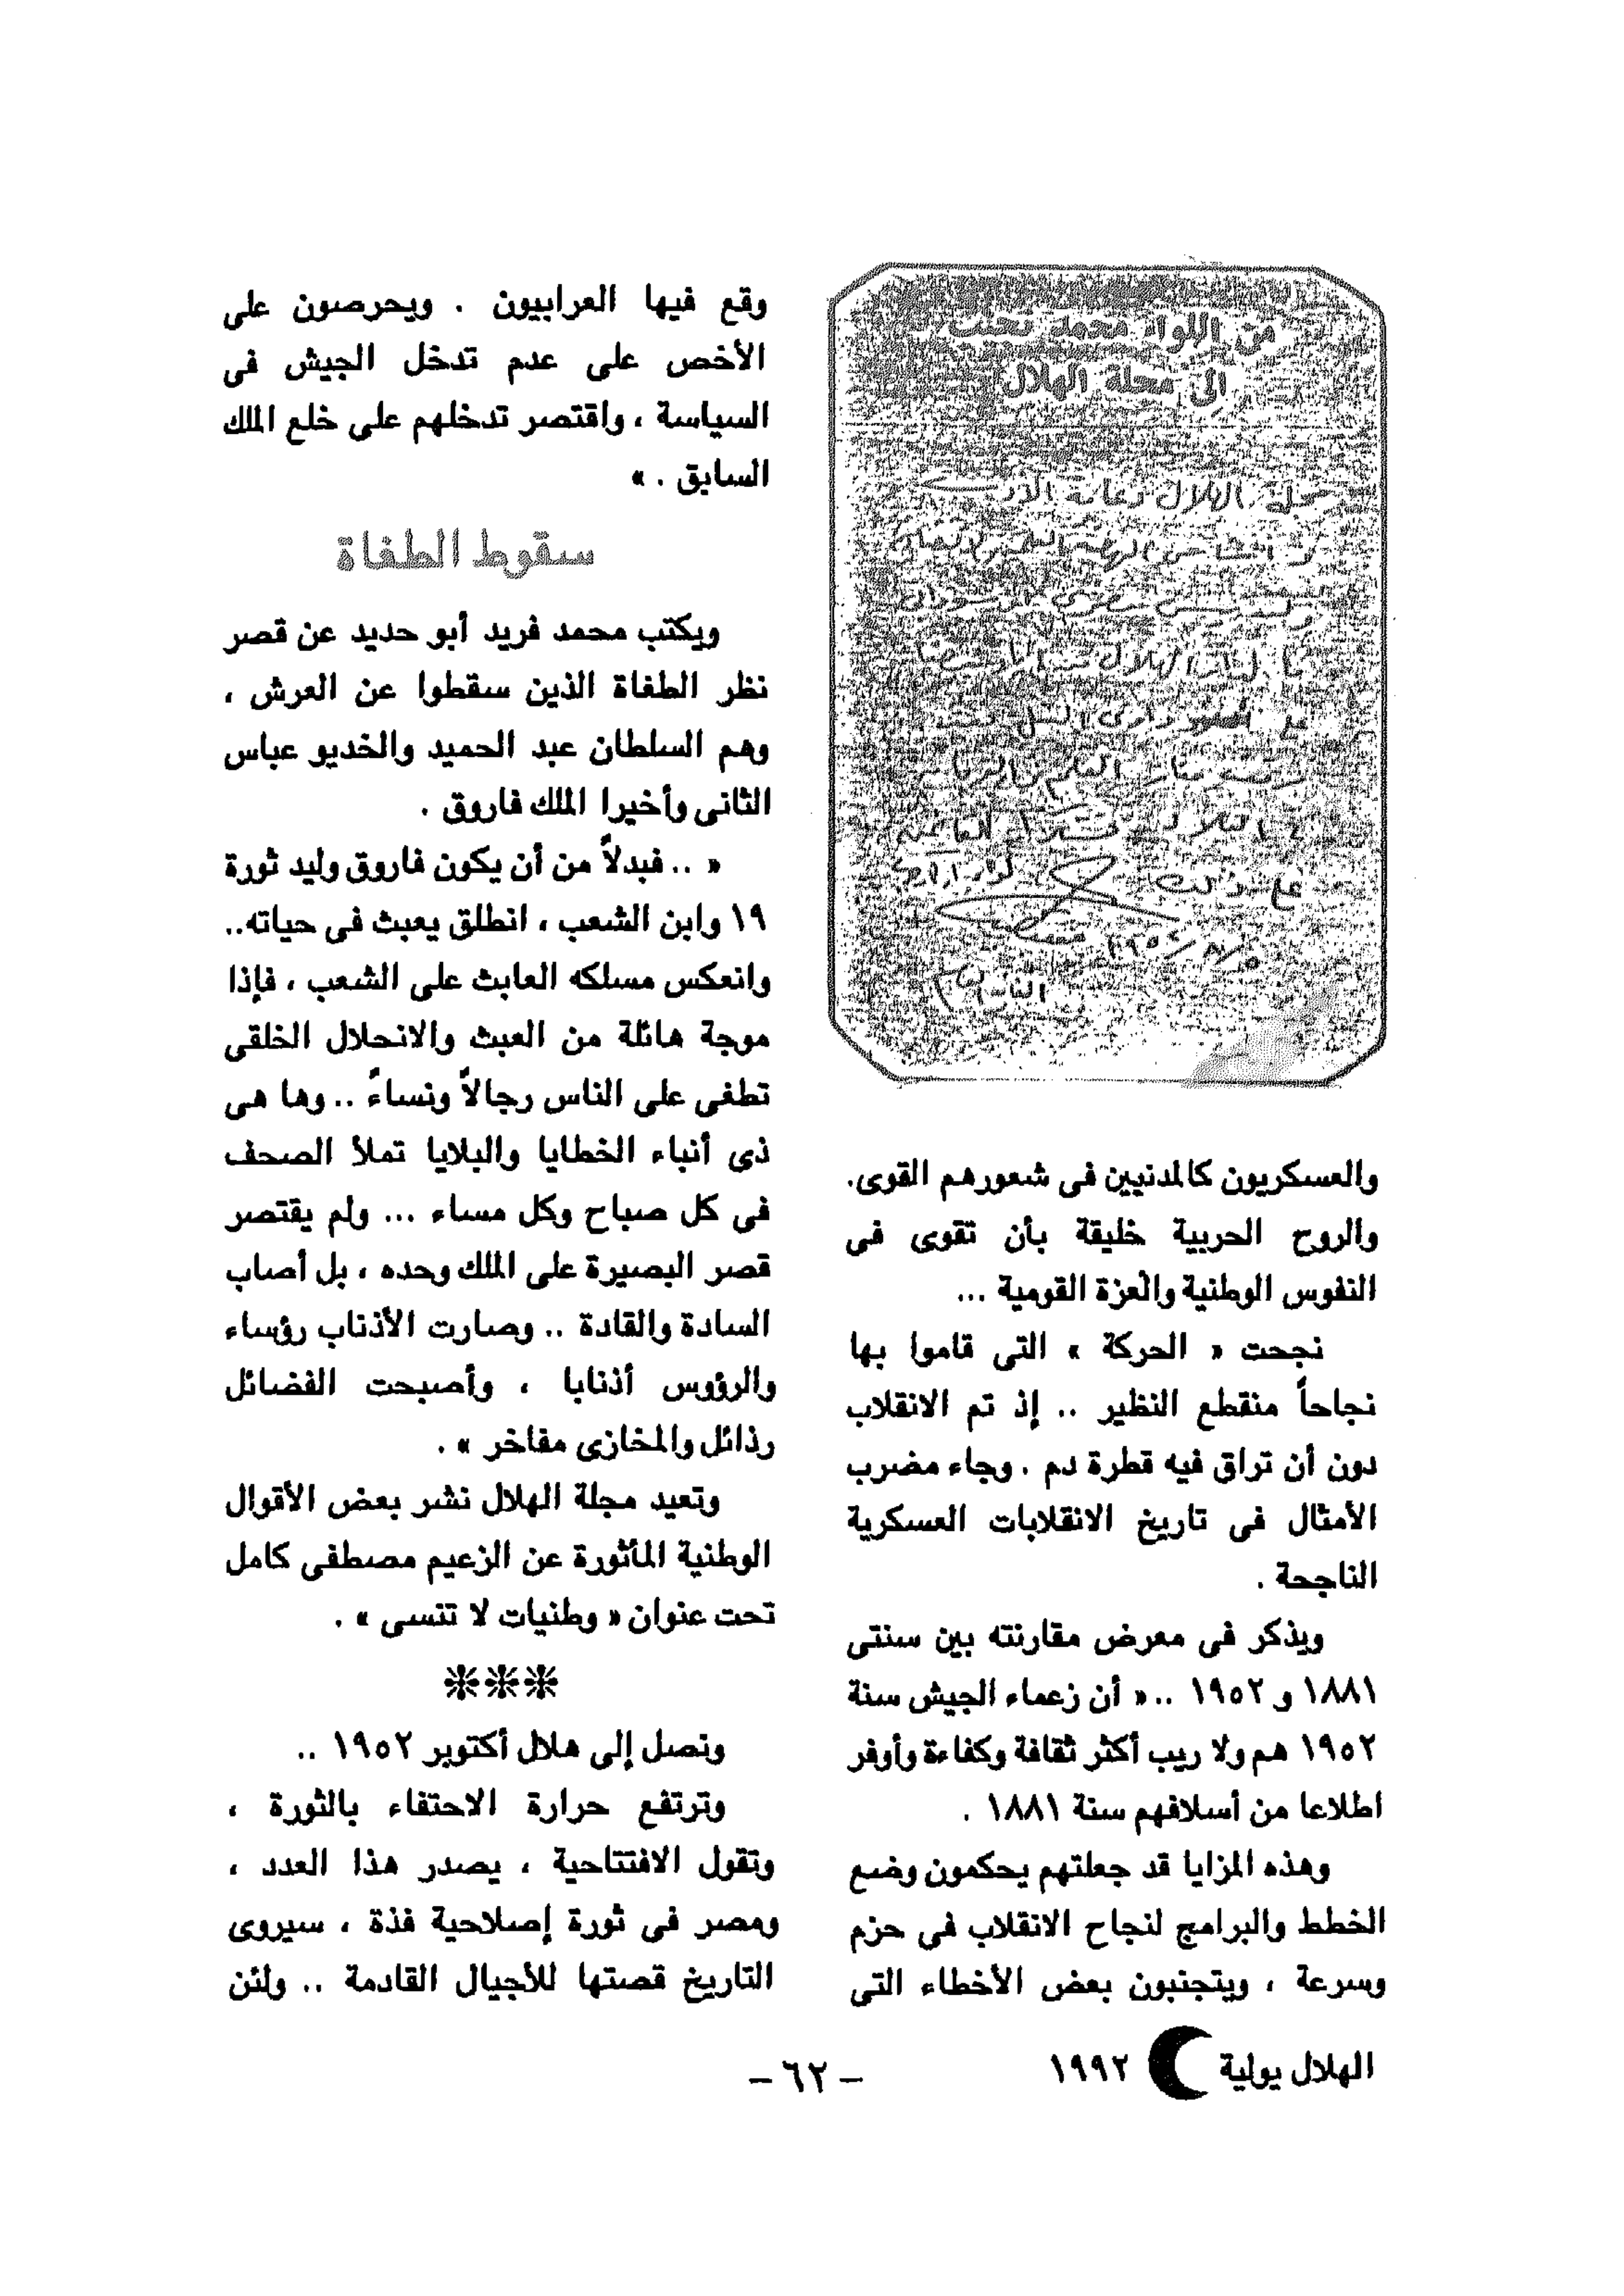 من اللواء محمد نجيب
الى مجلة الهلال
مجلة الهلال
الهلال
على ذلك
والعسكريون كالمدنيين فى شعورهم القوى.
والروح الحربية خليقة بأن تقوى فى
النفوس الوطنية والعزة القومية ...
نجحت « الحركة » التى قاموا بها
نجاحاً منقطع النظير .. إذ تم الانقلاب
دون أن تراق فيه قطرة دم . وجاء مضرب
الأمثال فى تاريخ الانقلابات العسكرية
الناجحة .
ويذكر فى معرض مقارنته بين سنتى
١٨٨١ و ١٩٥٢ .. « أن زعماء الجيش سنة
١٩٥٢ هم ولا ريب أكثر ثقافة وكفاءة وأوفر
اطلاعا من أسلافهم سنة ١٨٨١ .
وهذه المزايا قد جعلتهم يحكمون وضع
الخطط والبرامج لنجاح الانقلاب فى حزم
وسرعة ، ويتجنبون بعض الأخطاء التى
وقع فيها العرابيون . ويحرصون على
الأخص على عدم تدخل الجيش فى
السياسة ، واقتصر تدخلهم على خلع الملك
السابق . »
سقوط الطغاة
ويكتب محمد فريد أبو حديد عن قصر
نظر الطغاة الذين سقطوا عن العرش ،
وهم السلطان عبد الحميد والخديو عباس
الثانى وأخيرا الملك فاروق .
« .. فبدلاً من أن يكون فاروق وليد ثورة
١٩ وابن الشعب ، انطلق يعبث فى حياته..
وانعكس مسلكه العابث على الشعب ، فإذا
موجة هائلة من العبث والانحلال الخلقى
تطغى على الناس رجالاً ونساءً .. وها هى
ذى أنباء الخطايا والبلايا تملأ الصحف
فى كل صباح وكل مساء ... ولم يقتصر
قصر البصيرة على الملك وحده ، بل أصاب
السادة والقادة .. وصارت الأذناب رؤساء
والرؤوس أذنابا ، وأصبحت الفضائل
رذائل والمخازى مفاخر » .
وتعيد مجلة الهلال نشر بعض الأقوال
الوطنية المأثورة عن الزعيم مصطفى كامل
تحت عنوان « وطنيات لا تنسى » .
***
ونصل إلى هلال أكتوبر ١٩٥٢ ..
وترتفع حرارة الاحتفاء بالثورة ،
وتقول الافتتاحية ، يصدر هذا العدد ،
ومصر فى ثورة إصلاحية فذة ، سيروى
التاريخ قصتها للأجيال القادمة .. ولئن
الهلال يولية ١٩٩٢
- ٦٢ -